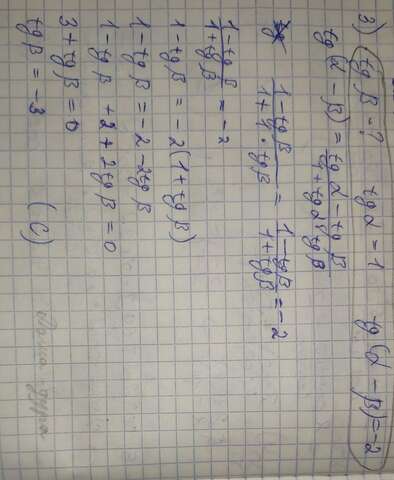 3) tg β = ? tg α = 1 tg(α - β) = -2
tg(α - β) = (tg α - tg β)/(1 + tg α · tg β)
(1 - tg β)/(1 + 1 · tg β) = (1 - tg β)/(1 + tg β) = -2
(1 - tg β)/(1 + tg β) = -2
1 - tg β = -2(1 + tg β)
1 - tg β = -2 - 2tg β
1 - tg β + 2 + 2tg β = 0
3 + tg β = 0
tg β = -3 (C)